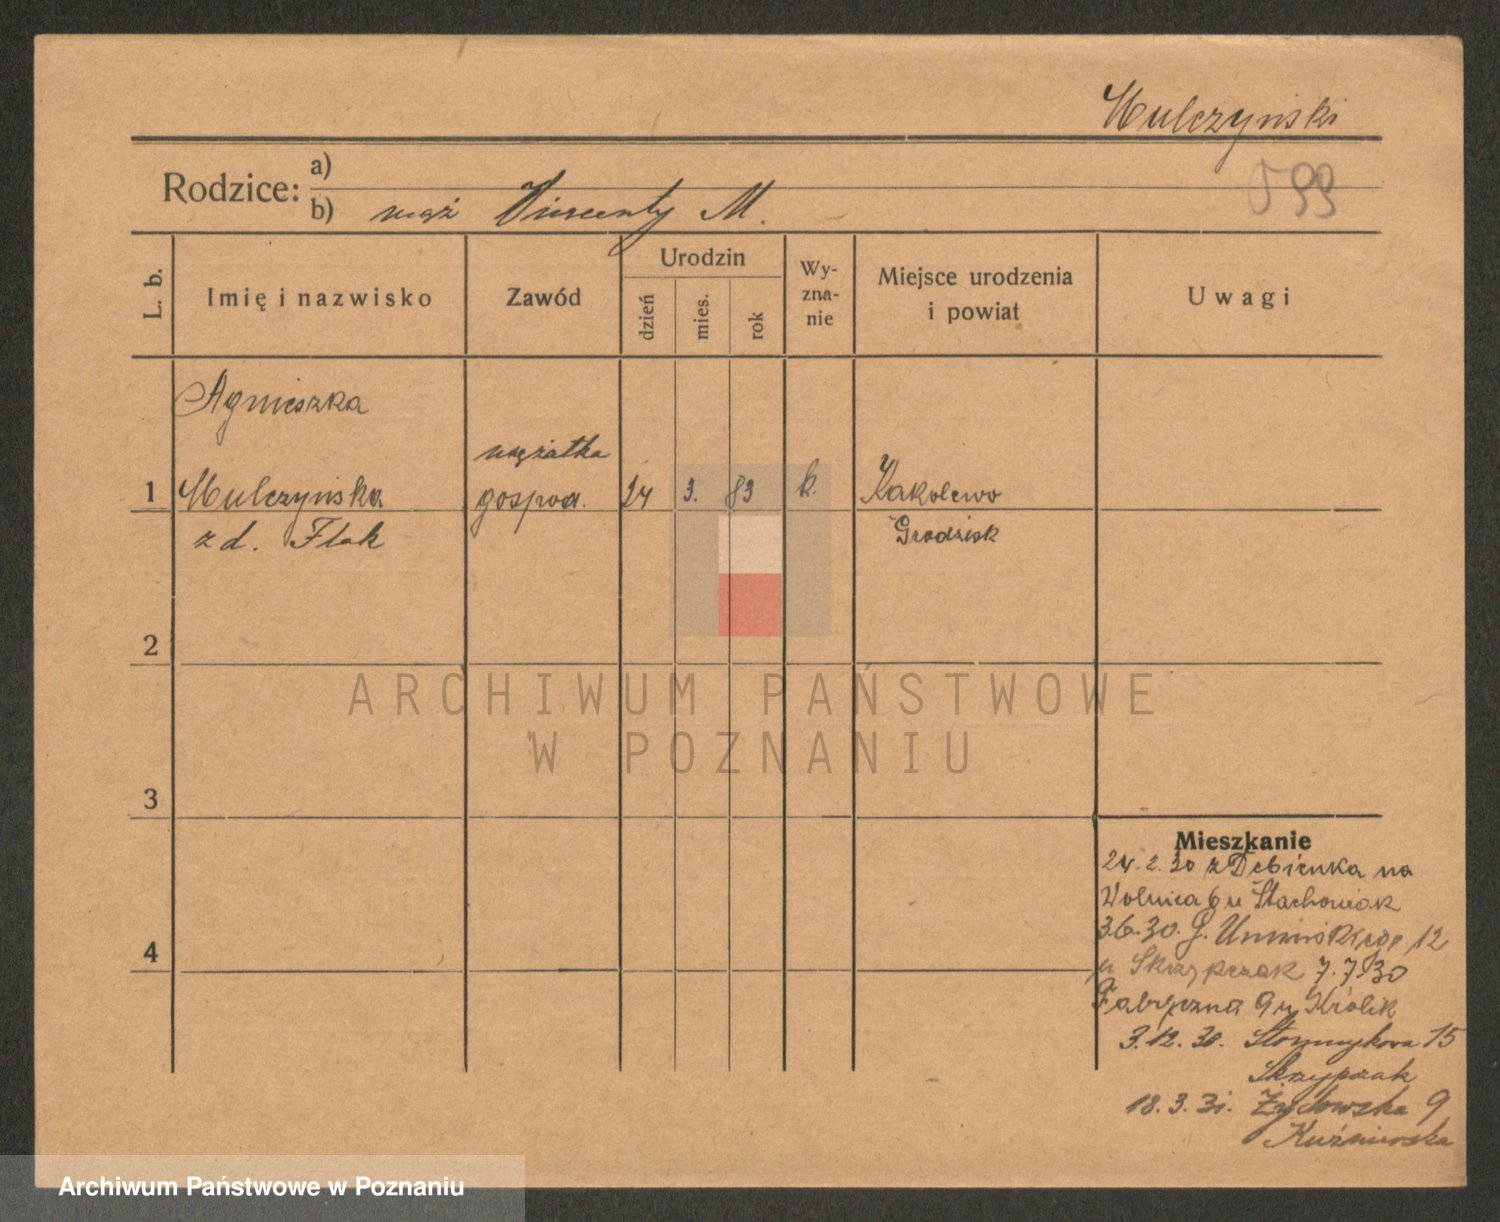 Mulczyński
Rodzice: a)
b) mąż Vincenty M.
L. b.
Imię i nazwisko
Zawód
Urodzin
dzień
mies.
rok
Wy-
zna-
nie
Miejsce urodzenia
i powiat
Uwagi
Agnieszka
mężatka
1 Mulczyńska gospod. 24 3. 83 k. Kakolewo
z d. Flak Grodzisk
2
ARCHIWUM PAŃSTWOWE
W POZNANIU
3
Mieszkanie
24.2.30 z Dębienka na
Wolnica 6 u Stachowiak
4
3.6.30. G. Umińskiego 12
u Skrzypczak 7.7.30
Fabryczna 9 u Królik
3.12.30. Słomnykova 15
Skrzypczak
18.3.31. Żydowska 9
Kuźniewska
Archiwum Państwowe w Poznaniu